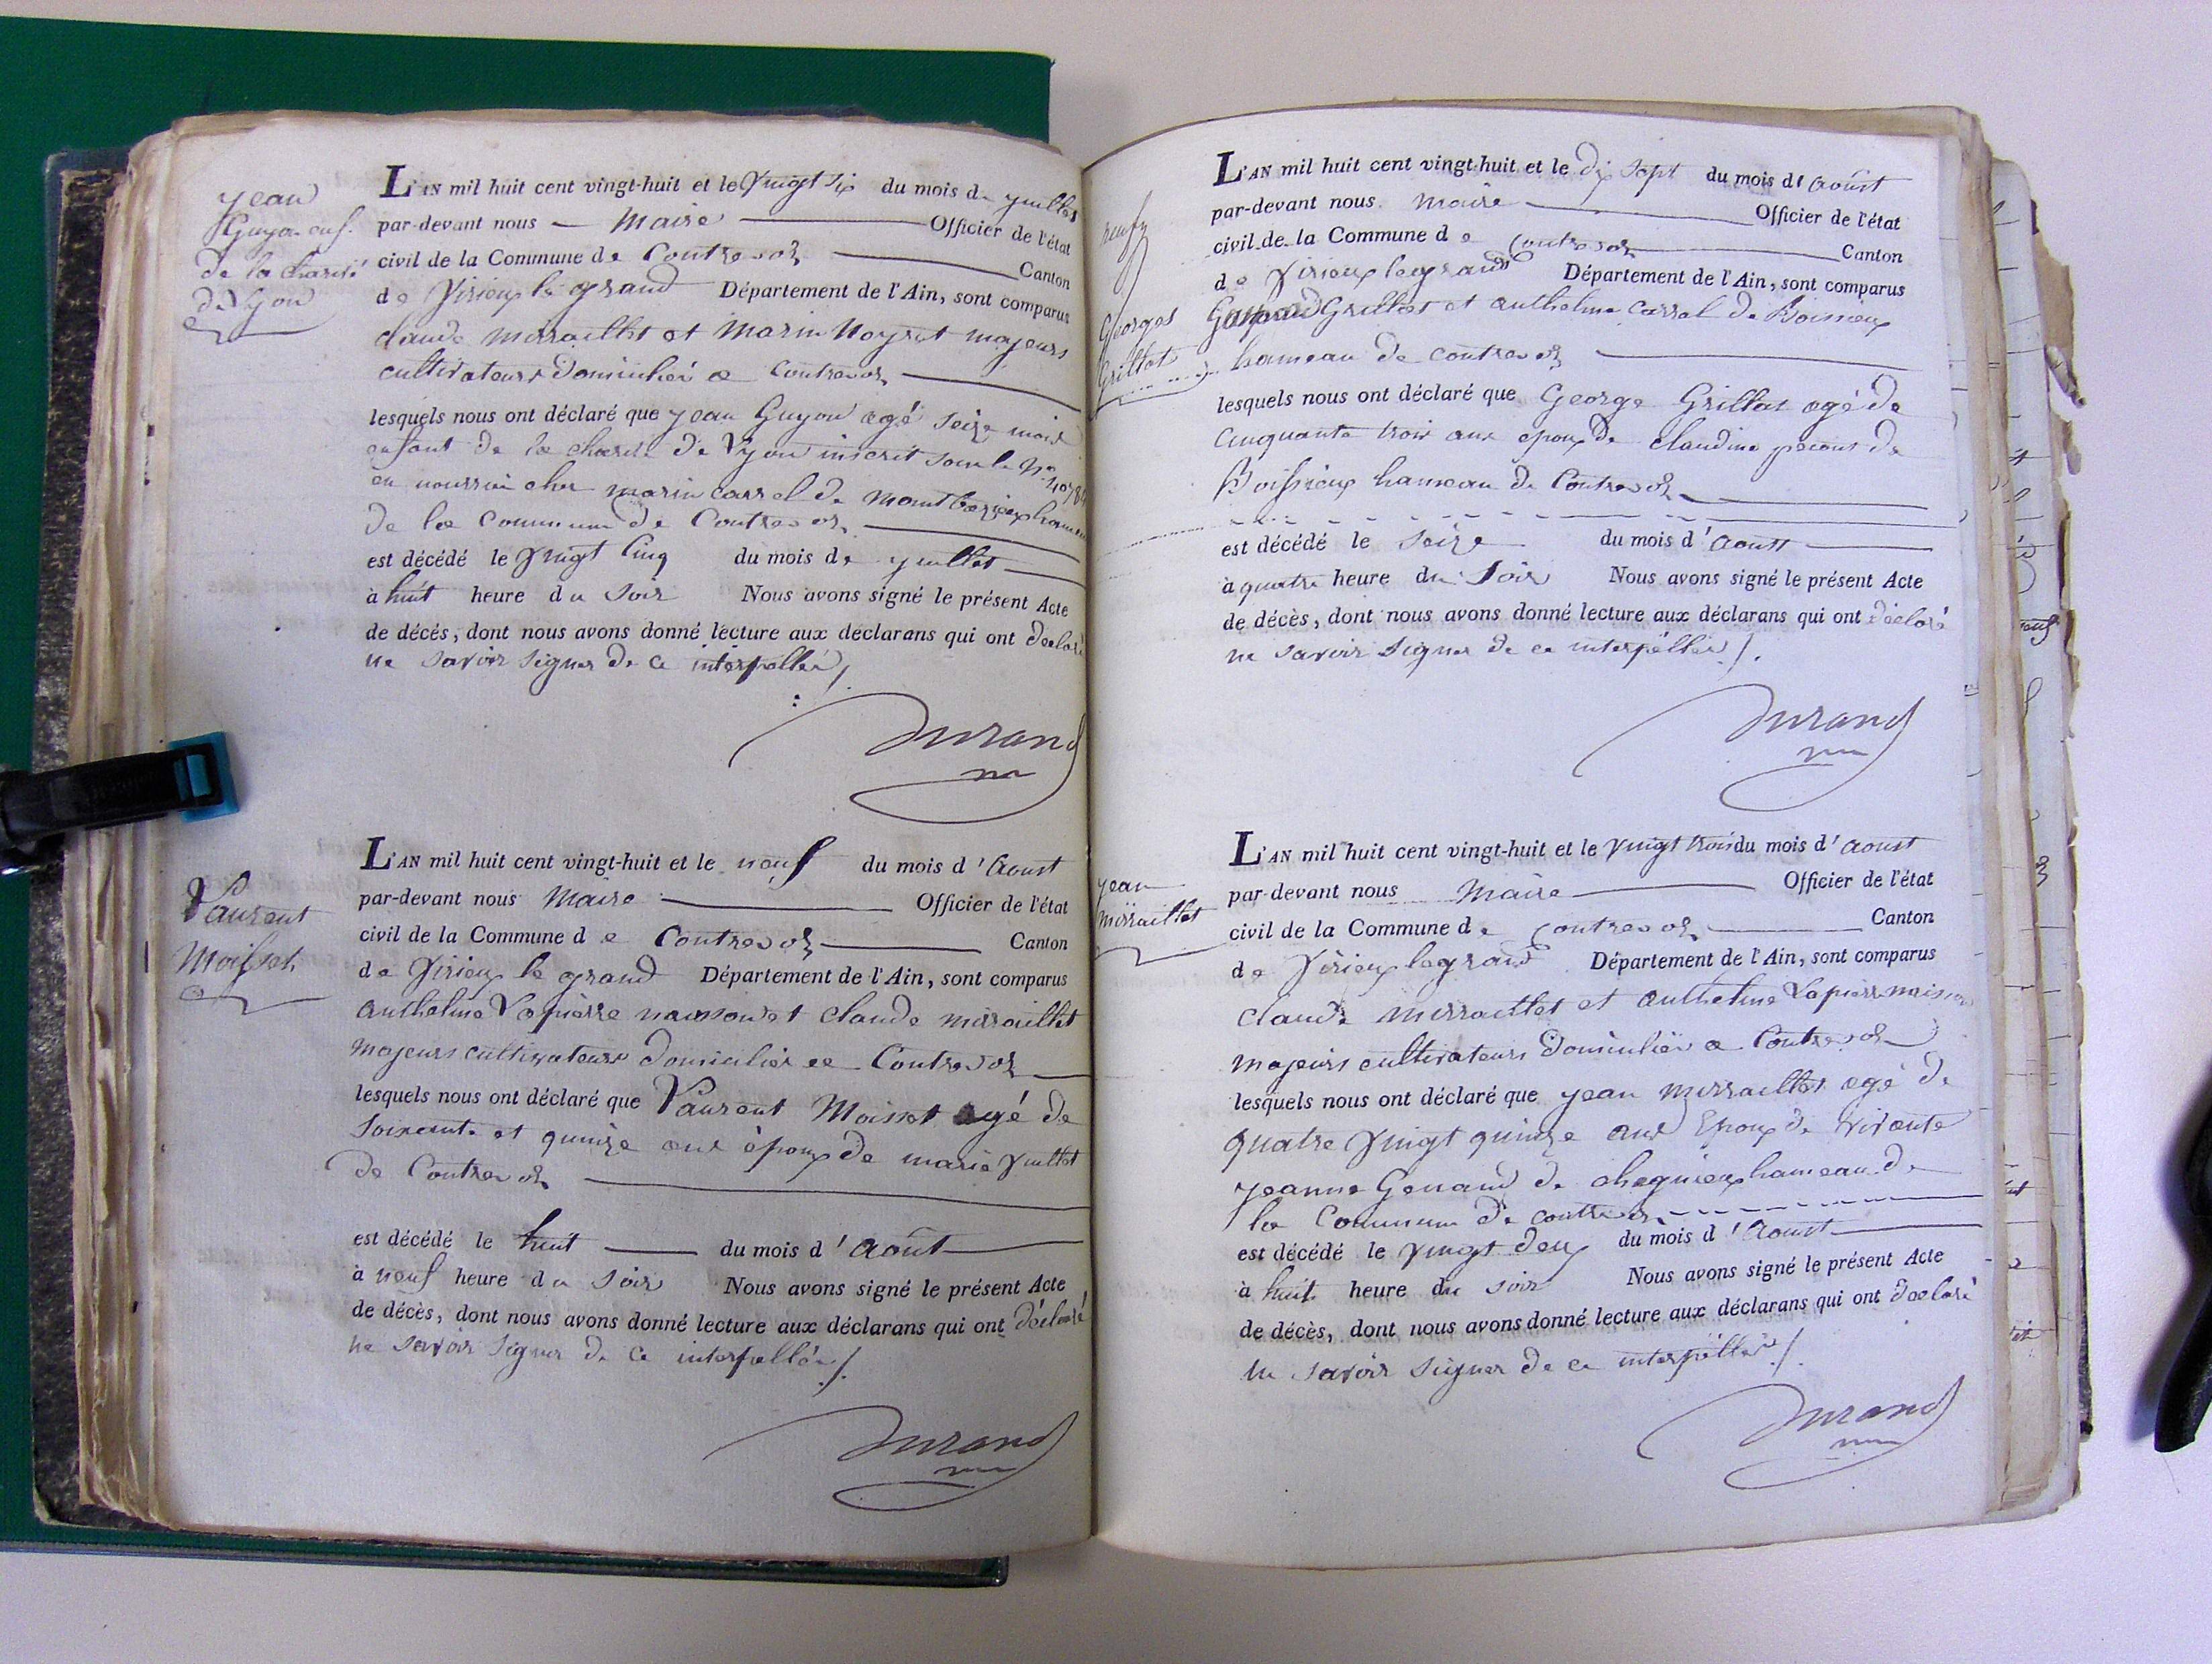 Jean
Guyon enf.
de la charité
de Lyon
L'AN mil huit cent vingt-huit et le vingt six du mois de juillet
par-devant nous Maire Officier de l'état
civil de la Commune de Contrevoz Canton
de Virieux le grand Département de l'Ain, sont comparus
claude mirraillet et Marin Noyret majeurs
cultivateurs domiciliés a Contrevoz
lesquels nous ont déclaré que jean Guyon agé seize mois
enfant de la charité de Lyon inscrit sous le No.
en nourrice chez marin carrel de hameau
de la Commune de Contrevoz
est décédé le vingt Cinq du mois de juillet
à huit heure du Soir Nous avons signé le présent Acte
de décés, dont nous avons donné lecture aux déclarans qui ont déclaré
ne savoir signer de ce interpellés
Durand
Laurent
Moisset
L'AN mil huit cent vingt-huit et le neuf du mois d'Aoust
par-devant nous Maire Officier de l'état
civil de la Commune de Contrevoz Canton
de Virieux le grand Département de l'Ain, sont comparus
Anthelme Lapierre et claude mirraillet
majeurs cultivateurs domiciliés a Contrevoz
lesquels nous ont déclaré que Laurent Moisset agé de
soixante et quinze ans époux de marie juillet
de Contrevoz
est décédé le huit du mois d'Août
à neuf heure du Soir Nous avons signé le présent Acte
de décès, dont nous avons donné lecture aux déclarans qui ont déclaré
ne savoir signer de ce interpellés /.
Durand
Georges
Grillet
L'AN mil huit cent vingt-huit et le dix sept du mois d'Août
par-devant nous Maire Officier de l'état
civil de la Commune de Contrevoz Canton
de Virieux legrand Département de l'Ain, sont comparus
Grillet et anthelme carrel de Boissieux
hameau de contrevoz
lesquels nous ont déclaré que George Grillet agé de
cinquante trois ans epoux de claudine de
Boissieux hameau de Contrevoz
est décédé le seize du mois d'Aoust
à quatre heure du Soir Nous avons signé le présent Acte
de décès, dont nous avons donné lecture aux déclarans qui ont déclaré
ne savoir signer de ce interpellés /.
Durand
jean
mirraillet
L'AN mil huit cent vingt-huit et le vingt trois du mois d'Aoust
par-devant nous Maire Officier de l'état
civil de la Commune de Contrevoz Canton
de Virieux legrand Département de l'Ain, sont comparus
Claude mirraillet et anthelme Lapierre
majeurs cultivateurs domiciliés a Contrevoz
lesquels nous ont déclaré que jean mirraillet agé de
quatre vingt quinze ans Epoux de vivante
jeanne Genand de chegnieux hameau de
la Commune de contrevoz
est décédé le vingt deux du mois d'Aoust
à huit heure du soir Nous avons signé le présent Acte
de décès, dont nous avons donné lecture aux déclarans qui ont declaré
ne savoir signer de ce interpellés /.
Durand